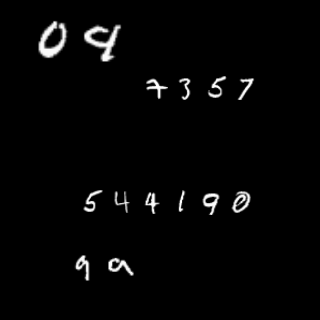 09
7357
544190
99